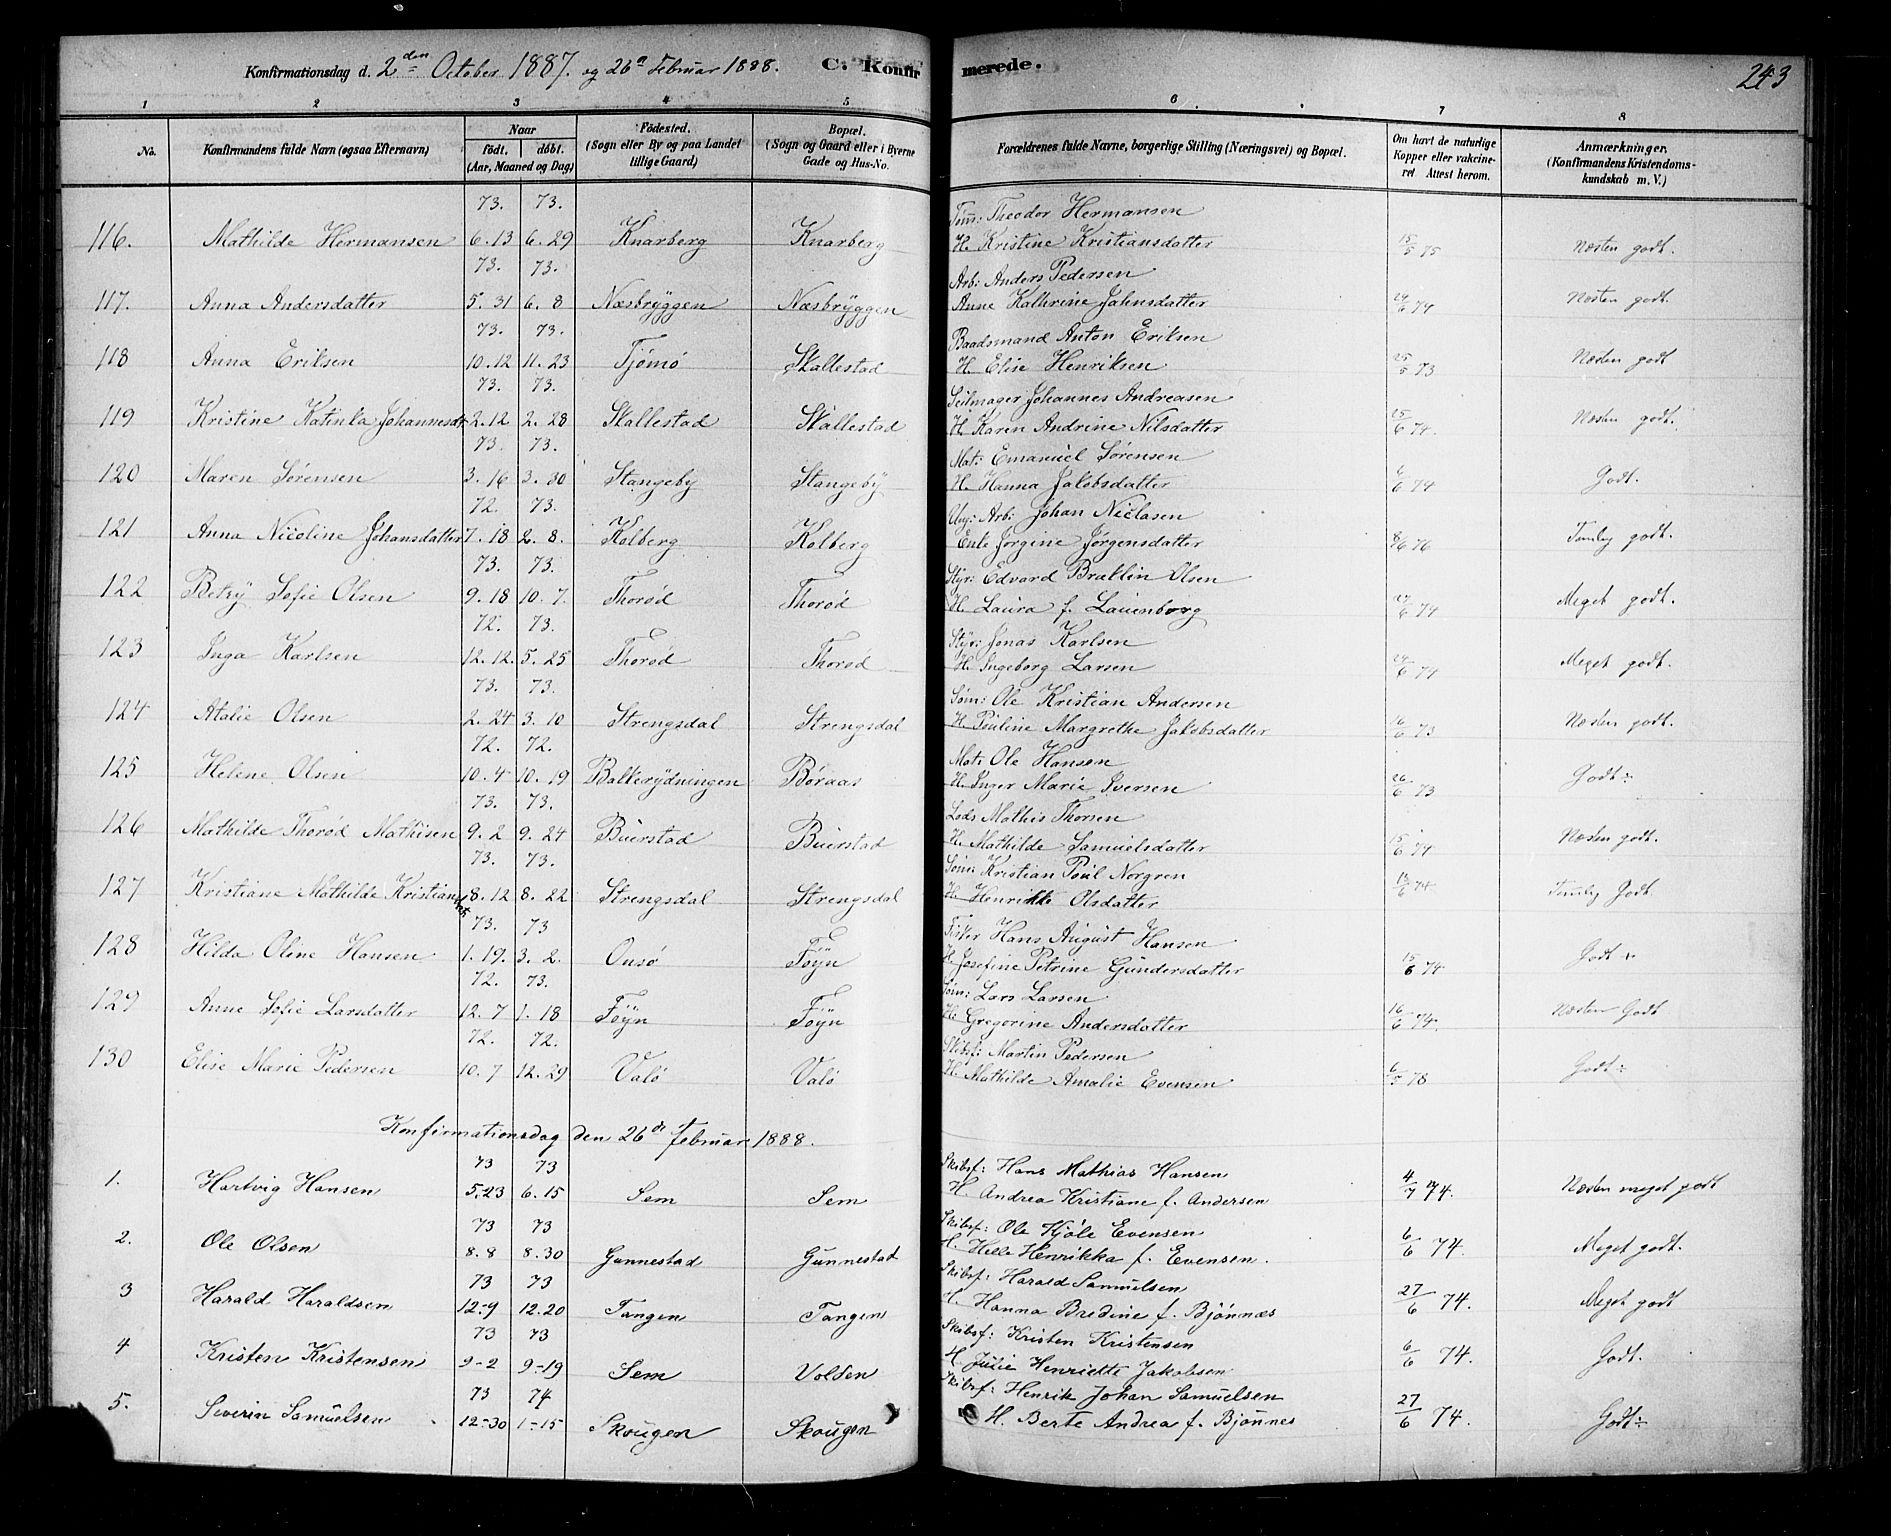 Konfirmationsdag d. 2den October 1887. og 26n Februar 1888. C. Konfirmerede. 243
1 2 3 4 5 6 7 8
No. Konfirmandens fulde Navn (ogsaa Efternavn) Naar født. døbt. (Aar, Maaned og Dag) Fødested. (Sogn eller By og paa Landet tillige Gaard) Bopæl. (Sogn og Gaard eller i Byerne Gade og Hus-No. Forældrenes fulde Navne, borgerlige Stilling (Næringsvei) og Bopæl. Om havt de naturlige Kopper eller vakcineret Attest herom. Anmærkninger. (Konfirmandens Kristendomskundskab m. V.)
73. 73. Tøm: Theodor Hermansen
116. Mathilde Hermansen 6. 13 6. 29 Knarberg Knarberg H. Kristine Kristiansdatter 15/5 75 Næsten godt.
73. 73. Arb: Anders Pedersen
117. Anna Andersdatter 5. 31 6. 8 Næsbryggen Næsbryggen Anne Kathrine Jahnsdatter 24/6 74 Næsten godt.
73. 73. Baadsmand Anton Eriksen
118 Anna Eriksen 10. 12 11. 23 Tjømø Skallestad H. Elise Henriksen 25/5 73 Næsten godt
73. 73. Seilmager Johannes Andreasen
119 Kristine Katinka Johannesdt. 2. 12 2. 28 Skallestad Skallestad H. Karen Andrine Nilsdatter 25/6 74. Næsten godt.
73. 73. Mat: Emanuel Sørensen
120 Maren Sørensen 3. 16 3. 30 Stangeby Stangeby H. Hanna Jakobsdatter 6/6 74 Godt.
72. 73. Ung: Arb: Johan Niclasen
121 Anna Nicoline Johansdatter 7. 18 2. 8. Kolberg Kolberg Enke Jørgine Jørgensdatter 8/6 76 Temlig godt.
73. 73. Styr: Edvard Bratlin Olsen
122 Betzy Sofie Olsen 9. 18 10. 7. Thorød Thorød H. Laura f. Lauenborg 27/6 74 Meget godt.
72. 73. Styr: Jonas Karlsen
123 Inga Karlsen 12. 12. 5. 25 Thorød Thorød H. Ingeborg Larsen 24/6 74 Meget godt.
73. 73. Søm: Ole Kristian Andersen
124 Atalie Olsen 2. 24 3. 10 Strengsdal Strengsdal H. Pauline Margrethe Jakobsdatter 16/6 73 Næsten godt.
72. 72. Mat: Ole Hansen
125 Helene Olsen 10. 4 10. 19 Bakkerydningen Boraas H. Inger Marie Iversen 26/6 73 Godt÷
73. 73. Lods Mathis Thorsen
126 Mathilde Thorød Mathisen 9. 2 9. 24 Buerstad Buerstad H. Mathilde Samuelsdatter 15/6 74 Næsten godt.
73. 73. Søm: Kristian Poul Norgren
127 Kristiane Mathilde Kristiansdt. 8. 12 8. 22 Strengsdal Strengsdal H. Henrikke Olsdatter 13/6 74 Temlig Godt.
73. 73 Fisker Hans August Hansen
128 Hilda Oline Hansen 1. 19. 3. 2. Onsø Føyn H. Josefine Petrine Gundersdatter 15/6 74 Godt +
72. 73. Søm: Lars Larsen
129 Anne Sofie Larsdatter 12. 7 1. 18 Føyn Føyn H. Gregorine Andersdatter 16/6 74. Næsten Godt
72. 72. Skibsf: Martin Pedersen
130 Elise Marie Pedersen 10. 7 12. 29 Valø Valø H. Mathilde Amalie Evensen 6/5 78 Godt÷
Konfirmationsdag den 26de februar 1888.
73 73 Skibsf: Hans Mathias Hansen
1. Hartvig Hansen 5. 23 6. 15 Sem Sem H. Andrea Kristiane f. Andersen 4/7 74. Næsten meget godt
73 73 Skibsf: Ole Kjøle Evensen
2. Ole Olsen 8. 8 8. 30 Gunnestad Gunnestad H. Helle Henrikka f. Evensen. 6/6 74. Meget godt.
73 73 Skibsf: Harald Samuelsen
3 Harald Haraldsen 12-9 12. 20 Tangen Tangen H. Hanna Bredine f. Bjønnæs 27/6 74. Meget godt
73 73 Skibsf: Kristen Kristensen
4 Kristen Kristensen 9-2 9-19 Sem Volden H. Julie Henriette Jakobsen 6/6 74. Godt.
73 74 Skibsf: Henrik Johan Samuelsen
5. Severin Samuelsen 12-30 1-15 Skougen Skougen H. Berte Andrea f. Bjønnes 27/6 74. Godt÷